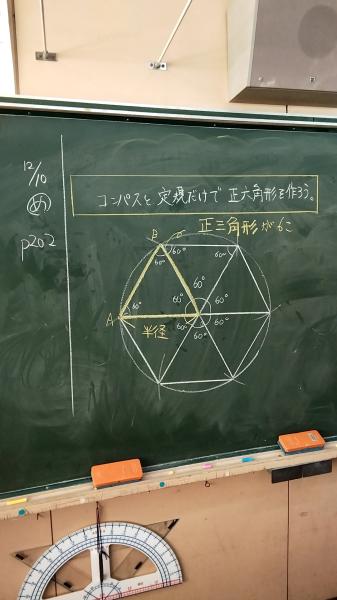 12/10
め
p202
コンパスと定規だけで正六角形を作ろう。
正三角形が6こ
B
60°
60°
60°
60°
60°
60°
60°
A
60°
60°
60°
60°
半径